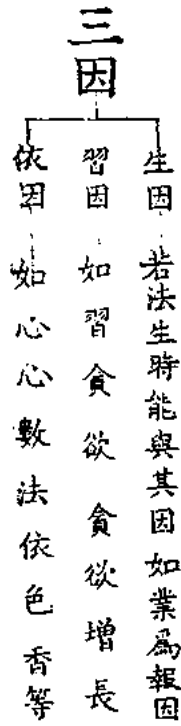 三因
生因 若法生時能與其因如業爲報因
習因 如習貪欲貪欲增長
依因 如心心數法依色香等